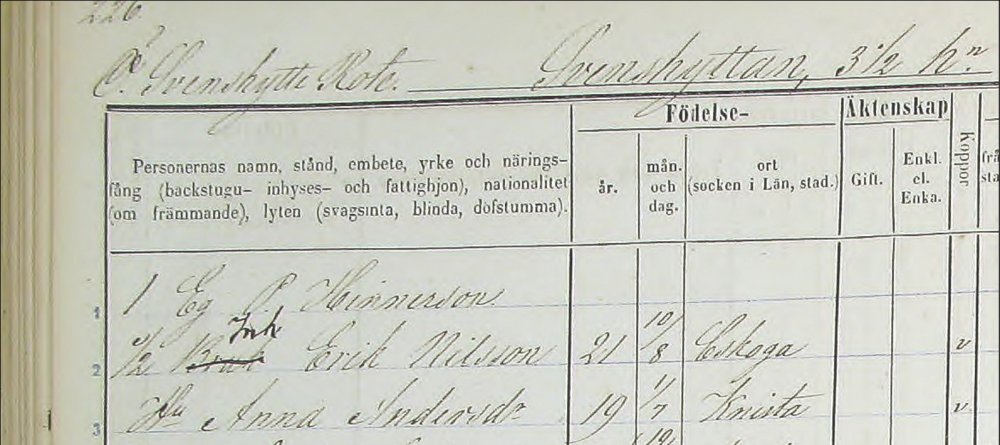 226.
Ö. Svenshytte Rote. Svenshyttan, 3 1/2 hn.
Personernas namn, stånd, embete, yrke och närings-
fång (backstugu- inhyses- och fattighjon), nationalitet
(om främmande), lyten (svagsinta, blinda, döfstumma).
Födelse-
år.
mån.
och
dag.
ort
(socken i Län, stad.)
Äktenskap
Gift.
Enkl.
el.
Enka.
Koppor
frå
sta
1 1 Eg P. Hinnerson
2 1/2 Inh Erik Nilsson 21 10/8 Eskoga v
3 Hu Anna Andersdr 19 1/7 Knista v.